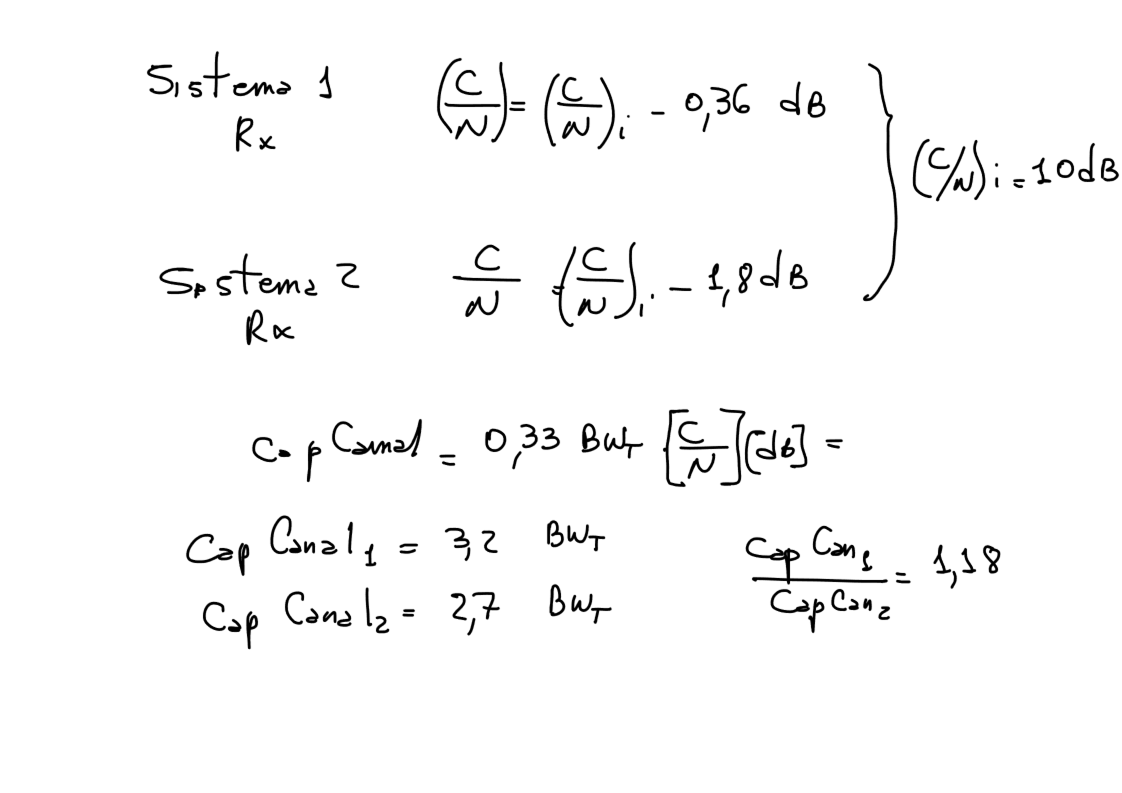 Sistema 1 (C/N) = (C/N)i - 0,36 dB
Rx
(C/N)i = 10 dB
Sistema 2 C/N = (C/N)i - 1,8 dB
Rx
Cap Canal = 0,33 BWT [C/N] [dB] =
Cap Canal1 = 3,2 BWT
Cap Canal2 = 2,7 BWT
Cap Can1 / Cap Can2 = 1,18